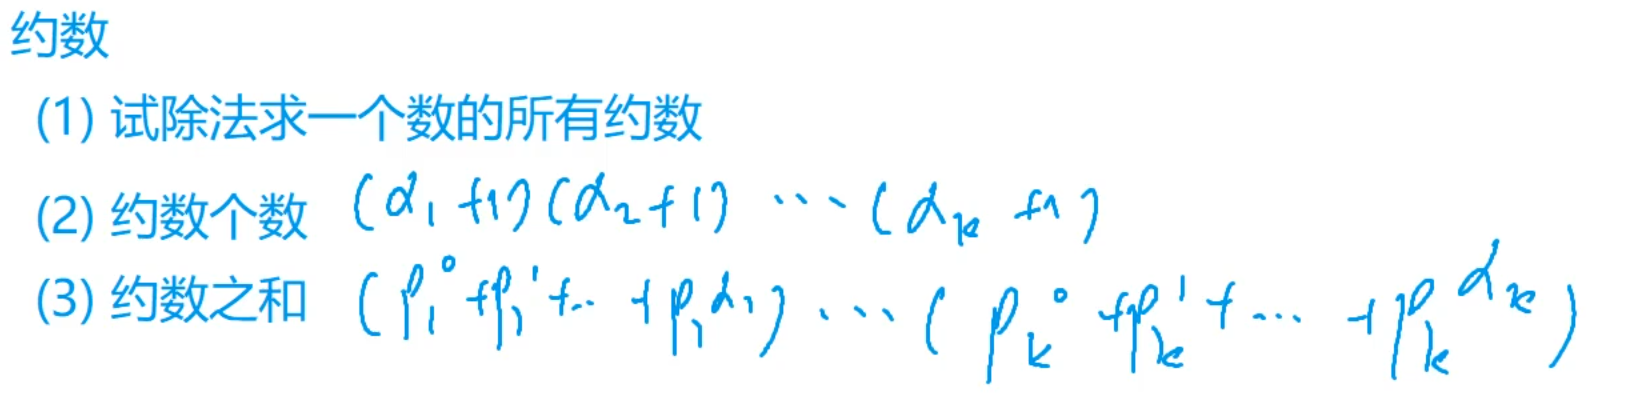 约数
(1) 试除法求一个数的所有约数
(2) 约数个数 (α₁+1)(α₂+1) ... (αₖ+1)
(3) 约数之和 (p₁⁰+p₁¹+...+p₁^α₁) ... (pₖ⁰+pₖ¹+...+pₖ^αₖ)